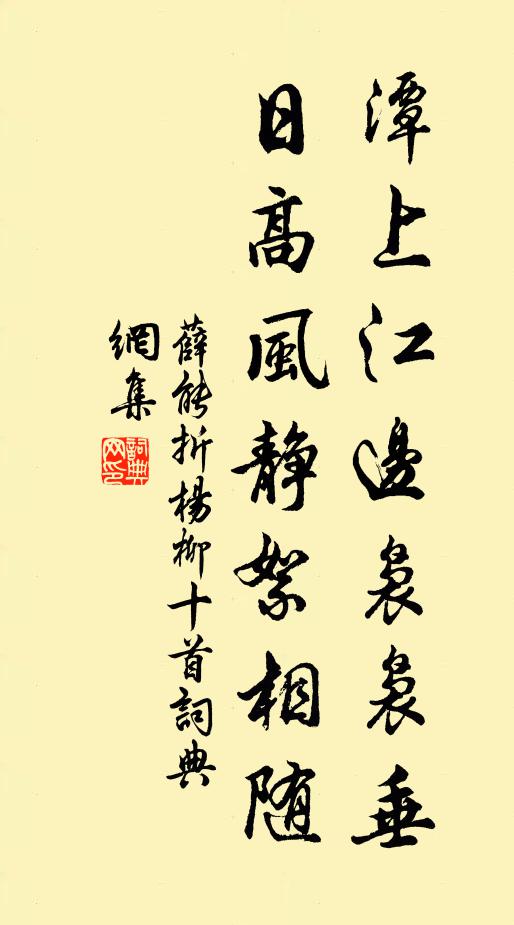 潭上江邊裊裊垂
日高風静絮相随
薛能折楊柳十首詞典
網集
詞典網印